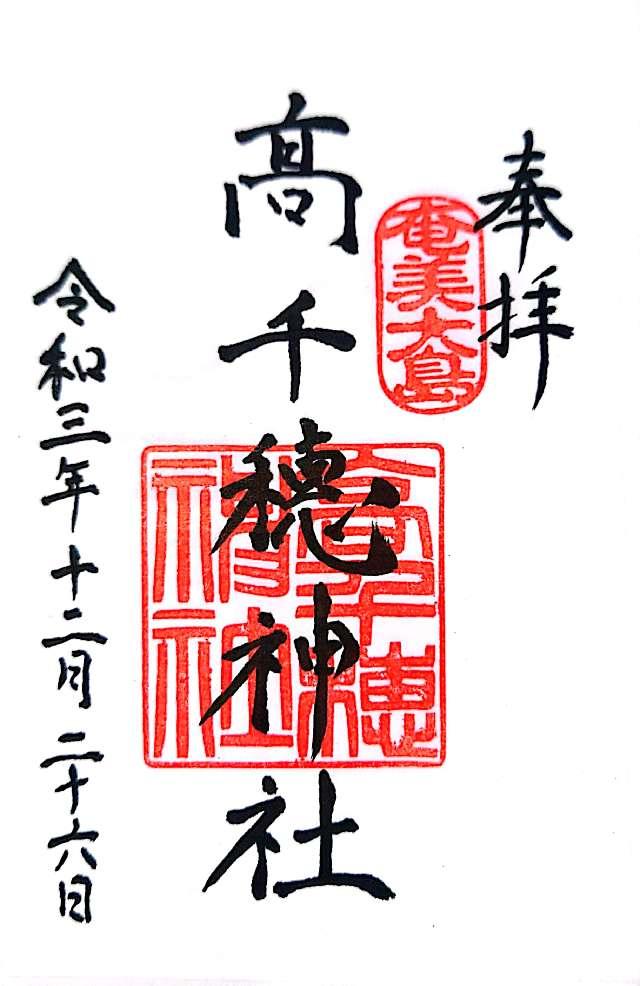 奉拝
奄美大島
髙千穂神社
高千穂
神社
令和三年十二月二十六日